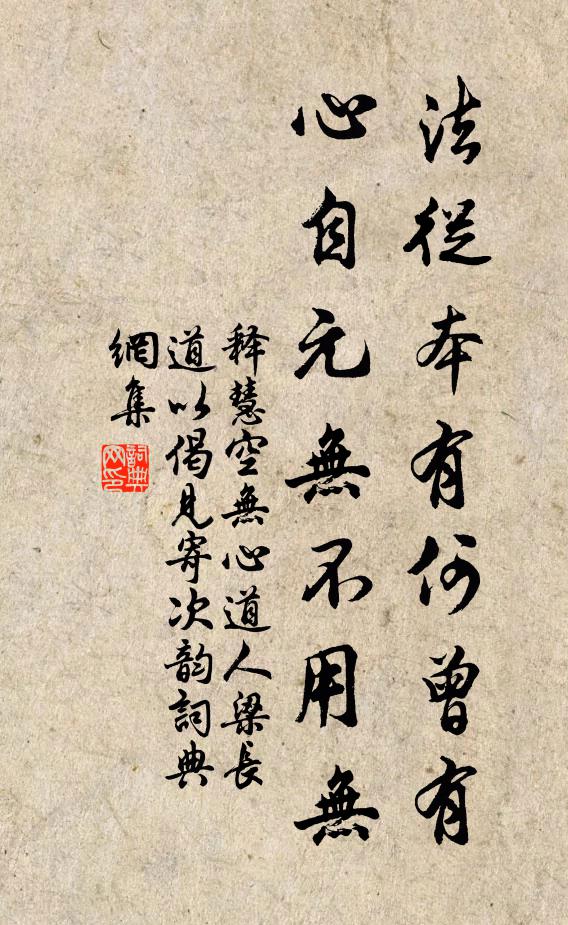 法從本有何曾有
心自元無不用無
释慧空無心道人梁長
道以偈見寄次韵詞典
網集
詞典網印